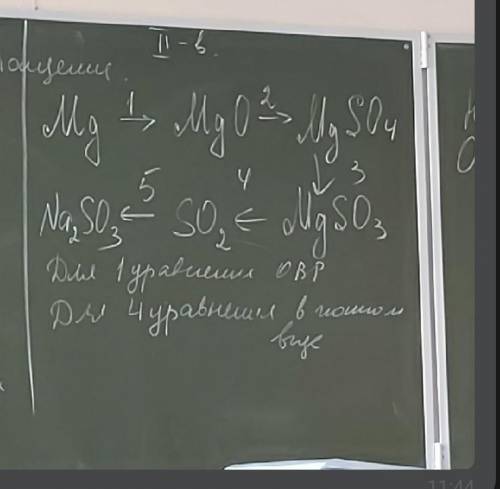 II - в.
Mg 1→ MgO 2→ MgSO4
↓ 3
Na2SO3 5← SO2 4← MgSO3
Для 1 уравнения ОВР
Для 4 уравнения в ионном
виде
11:44